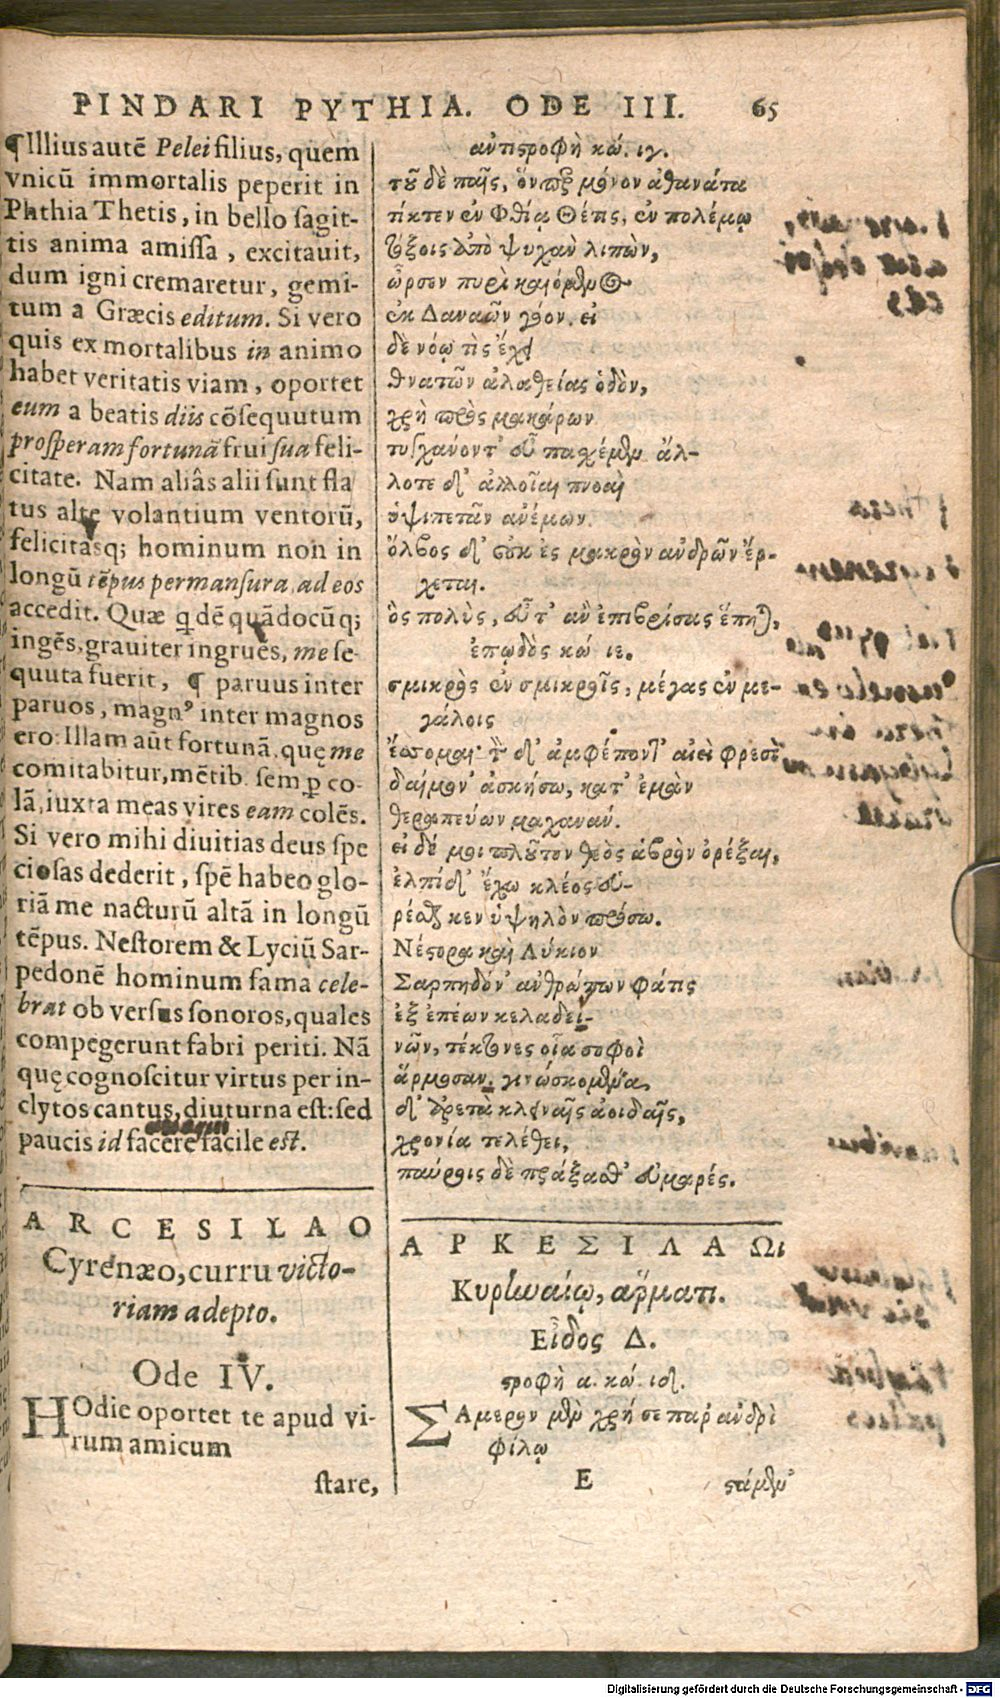 PINDARI PYTHIA. ODE III. 65
¶Illius autē Pelei filius, quem
vnicū immortalis peperit in
Phthia Thetis, in bello sagit-
tis anima amissa, excitauit,
dum igni cremaretur, gemi-
tum a Græcis editum. Si vero
quis ex mortalibus in animo
habet veritatis viam, oportet
eum a beatis diis cōsequutum
prosperam fortunā frui sua feli-
citate. Nam aliâs alii sunt fla
tus alte volantium ventorū,
felicitasq; hominum non in
longū tēpus permansura, ad eos
accedit. Quæ qdē quādocūq;
ingēs, grauiter ingruēs, me se-
quuta fuerit, ¶ paruus inter
paruos, magn⁹ inter magnos
ero: Illam aūt fortunā, quę me
comitabitur, mētib. semp co-
lā, iuxta meas vires eam colēs.
Si vero mihi diuitias deus spe
ciosas dederit, spē habeo glo-
riā me nacturū altā in longū
tēpus. Nestorem & Lyciū Sar-
pedonē hominum fama cele-
brat ob versus sonoros, quales
compegerunt fabri periti. Nā
quę cognoscitur virtus per in-
clytos cantus, diuturna est: sed
paucis id facere facile est.
ARCESILAO
Cyrenæo, curru victo-
riam adepto.
Ode IV.
HOdie oportet te apud vi-
rum amicum
stare,
ἀντιστροφὴ κώ. ιγ.
τοῦ δὲ παῖς, ὅνπερ μόνον ἀθανάτα
τίκτεν ἐν Φθίᾳ Θέτις, ἐν πολέμῳ
τόξοις ἀπὸ ψυχὰν λιπὼν,
ὦρσεν πυρὶ καιόμενος
ἐκ Δαναῶν γόον. εἰ
δὲ νόῳ τὶς ἔχει
θνατῶν ἀλαθείας ὁδὸν,
χρὴ πρὸς μακάρων
τυγχάνοντ' εὖ πασχέμεν. ἄλ-
λοτε δ' ἀλλοῖαι πνοαὶ
ὑψιπετᾶν ἀνέμων.
ὄλβος δ' οὐκ ἐς μακρὸν ἀνδρῶν ἔρ-
χεται.
ὃς πολὺς, εὖτ' ἂν ἐπιβρίσας ἕπηται,
ἐπῳδὸς κώ ιε.
σμικρὸς ἐν σμικροῖς, μέγας ἐν με-
γάλοις
ἔσσομαι· τὸν δ' ἀμφέποντ' αἰεὶ φρεσὶ
δαίμον' ἀσκήσω, κατ' ἐμὰν
θεραπεύων μαχανάν.
εἰ δέ μοι πλοῦτον θεὸς ἁβρὸν ὀρέξαι,
ἐλπίδ' ἔχω κλέος εὑ-
ρέσθαι κεν ὑψηλὸν πρόσω.
Νέστορα καὶ Λύκιον
Σαρπηδόν' ἀνθρώπων φάτις
ἐξ ἐπέων κελαδει-
νῶν, τέκτονες οἷα σοφοὶ
ἅρμοσαν, γινώσκομεν. ἁ
δ' ἀρετὰ κλειναῖς ἀοιδαῖς,
χρονία τελέθει,
παύροις δὲ πράξασθ' εὐμαρές.
ΑΡΚΕΣΙΛΑΩι
Κυρηναίῳ, ἅρματι.
Εἶδος Δ.
στροφὴ α. κώ. ιδ.
ΣΑμερον μὲν χρή σε παρ' ἀνδρὶ
φίλῳ
E στάμεν
Digitalisierung gefördert durch die Deutsche Forschungsgemeinschaft - DFG